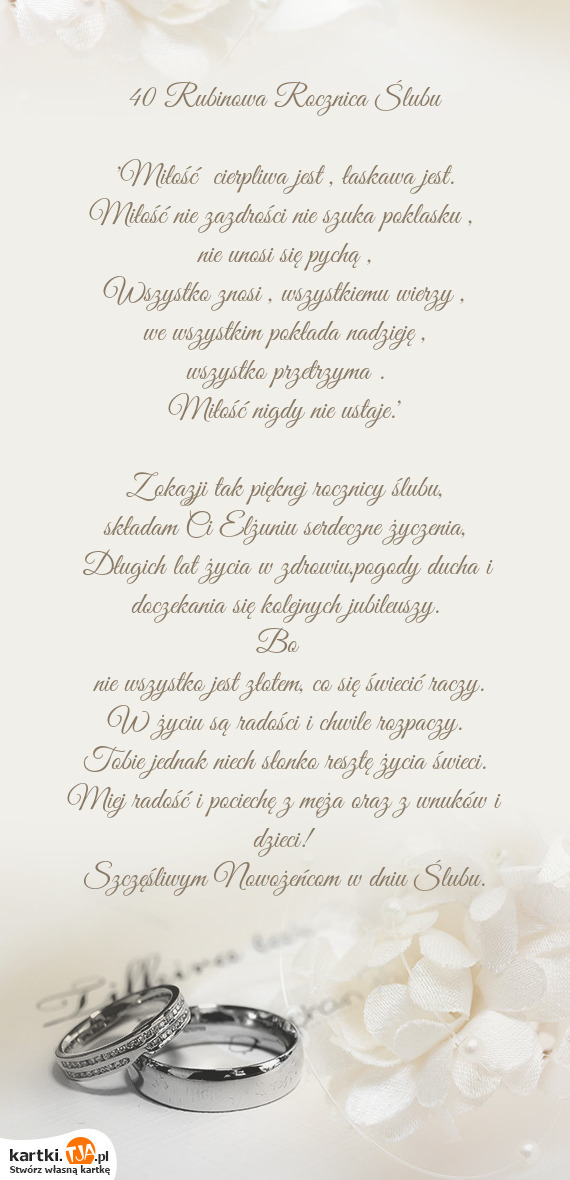 40 Rubinowa Rocznica Ślubu
'Miłość cierpliwa jest , łaskawa jest.
Miłość nie zazdrości nie szuka poklasku ,
nie unosi się pychą ,
Wszystko znosi , wszystkiemu wierzy ,
we wszystkim pokłada nadzieję ,
wszystko przetrzyma .
Miłość nigdy nie ustaje.'
Zokazji tak pięknej rocznicy ślubu,
składam Ci Elżuniu serdeczne życzenia,
Długich lat życia w zdrowiu,pogody ducha i
doczekania się kolejnych jubileuszy.
Bo
nie wszystko jest złotem, co się świecić raczy.
W życiu są radości i chwile rozpaczy.
Tobie jednak niech słonko resztę życia świeci.
Miej radość i pociechę z męża oraz z wnuków i
dzieci!
Szczęśliwym Nowożeńcom w dniu Ślubu.
kartki.TJA.pl
Stwórz własną kartkę